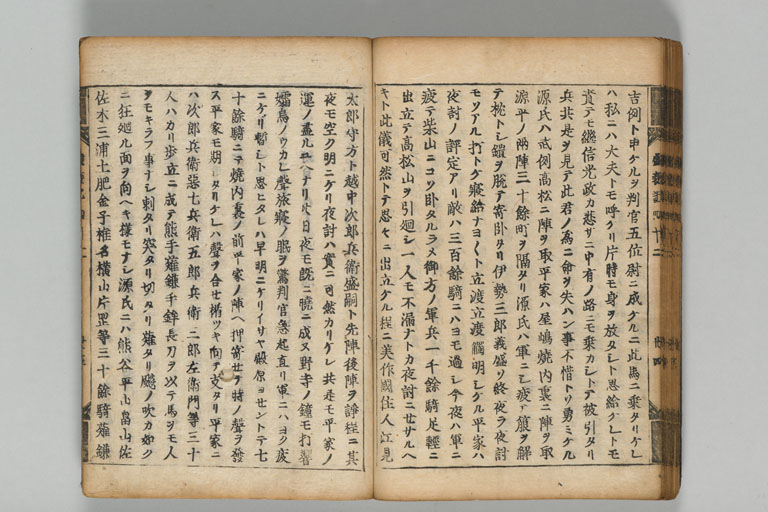 吉例ト申ケルヲ判官五位尉ニ成ケルニ此馬ニ乗タリケレ
ハ私ニハ大夫トモ呼ケリ片時モ身ヲ放タシト思給ケレトモ
責テモ継信光政カ悲サニ中有ノ路ニモ乗カシトテ被引タリ
兵共是ヲ見テ此君ノ為ニ命ヲ失ハン事不惜トソ勇ミケル
源氏ハ武例高松ニ陣ヲ取平家ハ屋嶋焼内裏ニ陣ヲ取
源平ノ両陣三十餘町ヲ隔タリ源氏ハ軍ニ乏疲テ箙ヲ解
テ枕トシ鎧ヲ脱テ寄臥タリ伊勢三郎義盛ソ終夜ラ夜討
モソアル打トケ寝給ナヨ〱ト立渡立渡觸明シケル平家ハ
夜討ノ評定アリ敵ハ三百餘騎ニハヨモ過シ今夜ハ軍ニ
疲テ柴山ニコソ臥タルラメ御方ノ軍兵一千餘騎足軽ニ
出立テ高松山ヲ引廻シ一人モ不漏ナトカ夜討ニセサルヘ
キト此儀可然トテ思々ニ出立ケル程ニ美作國住人江見
太郎守方ト越中次郎兵衛盛嗣ト先陣後陣ヲ諍程ニ其
夜モ空ク明ニケリ夜討ハ實ニ可然カリケレ共是モ平家ノ
運ノ盡ル故ナリ火日夜モ既ニ曉ニ成ヌ野寺ノ鐘モ打響
嬬鳥ノウカレ聲旅寝ノ眠ヲ驚判官急起直リ軍ニハヨク疲
ニケリ暫シト思ヒタレハ早明ニケリイサヤ殿原ヨセントテ七
十餘騎ニテ焼内裏ノ前平家ノ陣ヘ押寄セテ時ノ聲ヲ發
ス平家モ期シタリケレハ聲ヲ合セ楯ツキ向テ支タリ平家ニ
ハ次郎兵衛惡七兵衛五郎兵衛三郎左衛門等三十
人ハカリ歩立ニ成テ熊手薙鎌手鉾長刀ヲ以テ馬ヲモ人
ヲモキラフ事ナシ刺タリ突タリ切タリ薙タリ飈ノ吹カ如ク
ニ狂廻ル面ヲ向ヘキ様モナシ源氏ニハ熊谷平山畠山佐
佐木三浦土肥金子椎名横山片罡等三十餘騎薙鎌